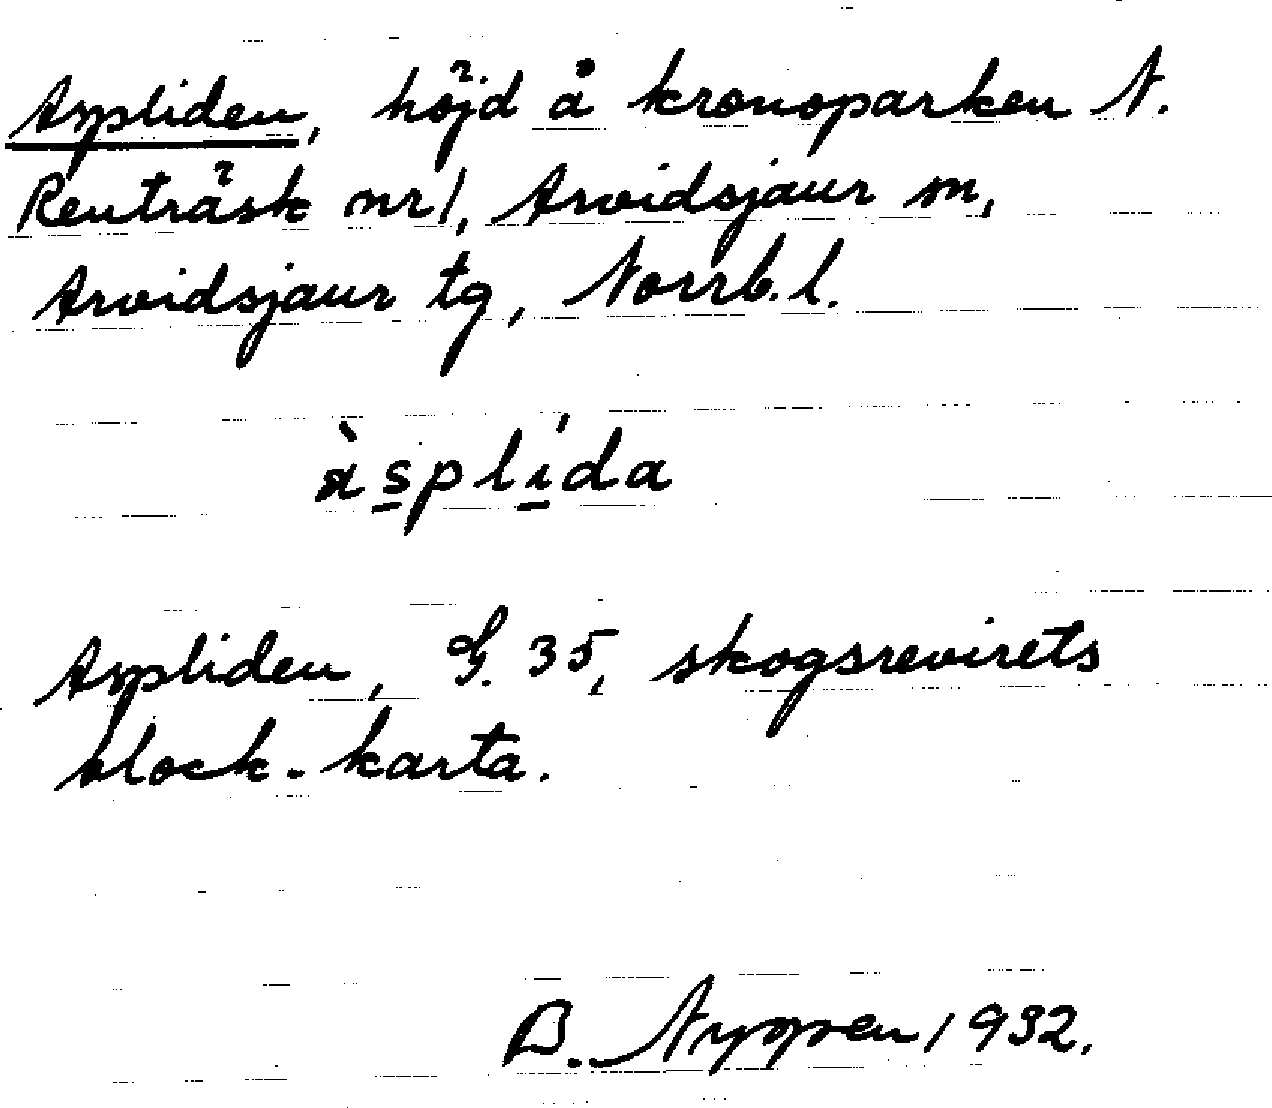 Aspliden, höjd å kronoparken N.
Renträsk nr 1, Arvidsjaur sn,
Arvidsjaur tg, Norrb. l.
àsplída
Aspliden, G. 35, skogsrevirets
block-karta.
B. Nyppen 1932.